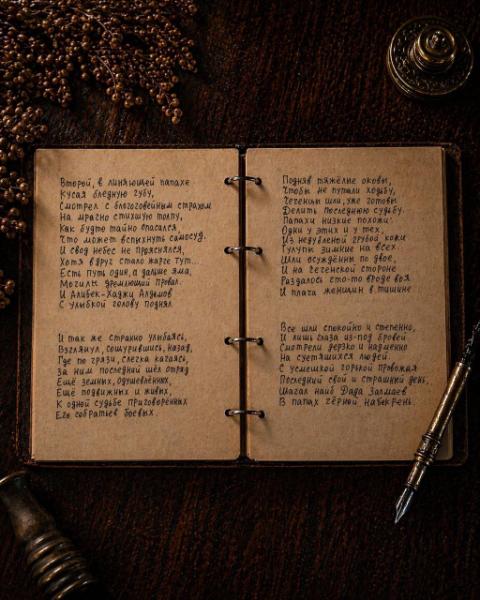 Второй, в линяющей папахе
Кусая бледную губу,
Смотрел с благоговейным страхом
На мрачно стихшую толпу,
Как будто тайно опасался,
Что может вспыхнуть самосуд.
И свод небес не прояснился,
Хотя вдруг стало жарче тут...
Есть путь один, а дальше яма,
Могилы дремлющий провал.
И Алибек-Хаджи Алдамов
С улыбкой голову поднял
И так же странно улыбаясь,
Взглянул, сощурившись, назад,
Где по грязи, слегка качаясь,
За ним последний шёл отряд
Ещё земных, одушевлённых,
Ещё подвижных и живых,
К одной судьбе приговорённых
Его собратьев боевых.
Подняв тяжёлые оковы,
Чтобы не путали ходьбу,
Чеченцы шли, уже готовы
Делить последнюю судьбу.
Папахи низкие похожи:
Одни у этих и у тех,
Из недублёной грубой кожи
Тулупы зимние на всех.
Шли осуждённые по двое,
И на чеченской стороне
Раздалось что-то вроде воя
И плача женщин в тишине
Все шли спокойно и степенно,
И лишь глаза из-под бровей
Смотрели дерзко и надменно
На суетящихся людей.
С усмешкой горькой провожая
Последний свой и страшный день,
Шагал наиб Дада Залмаев
В папахе чёрной набекрень.